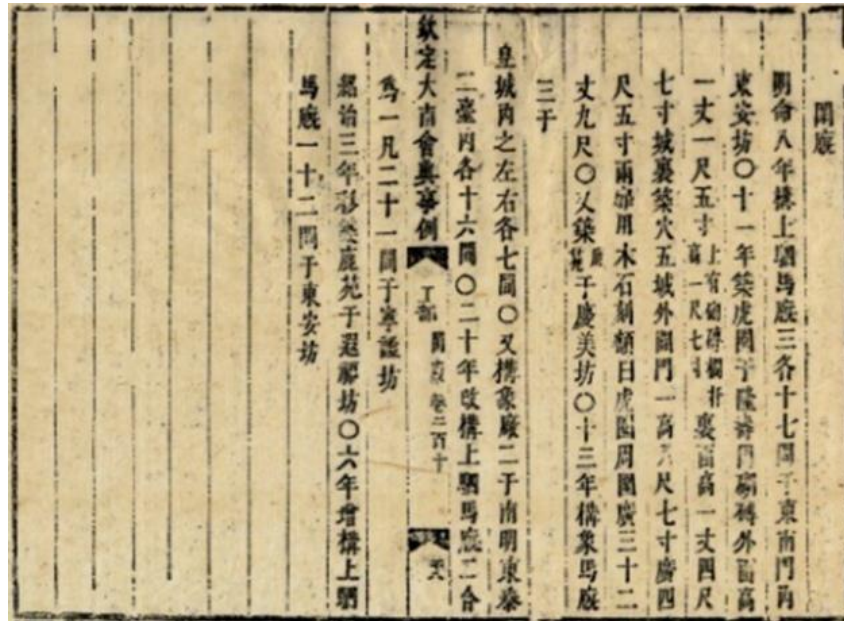 閑廐
明命八年構上駟馬廐三各十七間于東南門內
東安坊〇十一年築虎圈于隆壽岡磚外面高
一丈一尺五寸上有砌磚欄杆高一尺七寸裏面高一丈四尺
七寸城裏築穴五城外闢門一高六尺七寸廣四
尺五寸兩扉用木石刻額曰虎圈周圍廣三十二
丈九尺〇又築鹿苑于慶美坊〇十三年構象馬廐
三于
皇城內之左右各七間〇又構象廐二于南明東泰
二臺內各十六間〇二十年改構上駟馬廐二合
欽定大南會典事例 工部 閑廐 卷二百十 六
爲一凡二十一間于寧謐坊
紹治三年移築鹿苑于遐福坊〇六年增構上駟
馬廐一十二間于東安坊